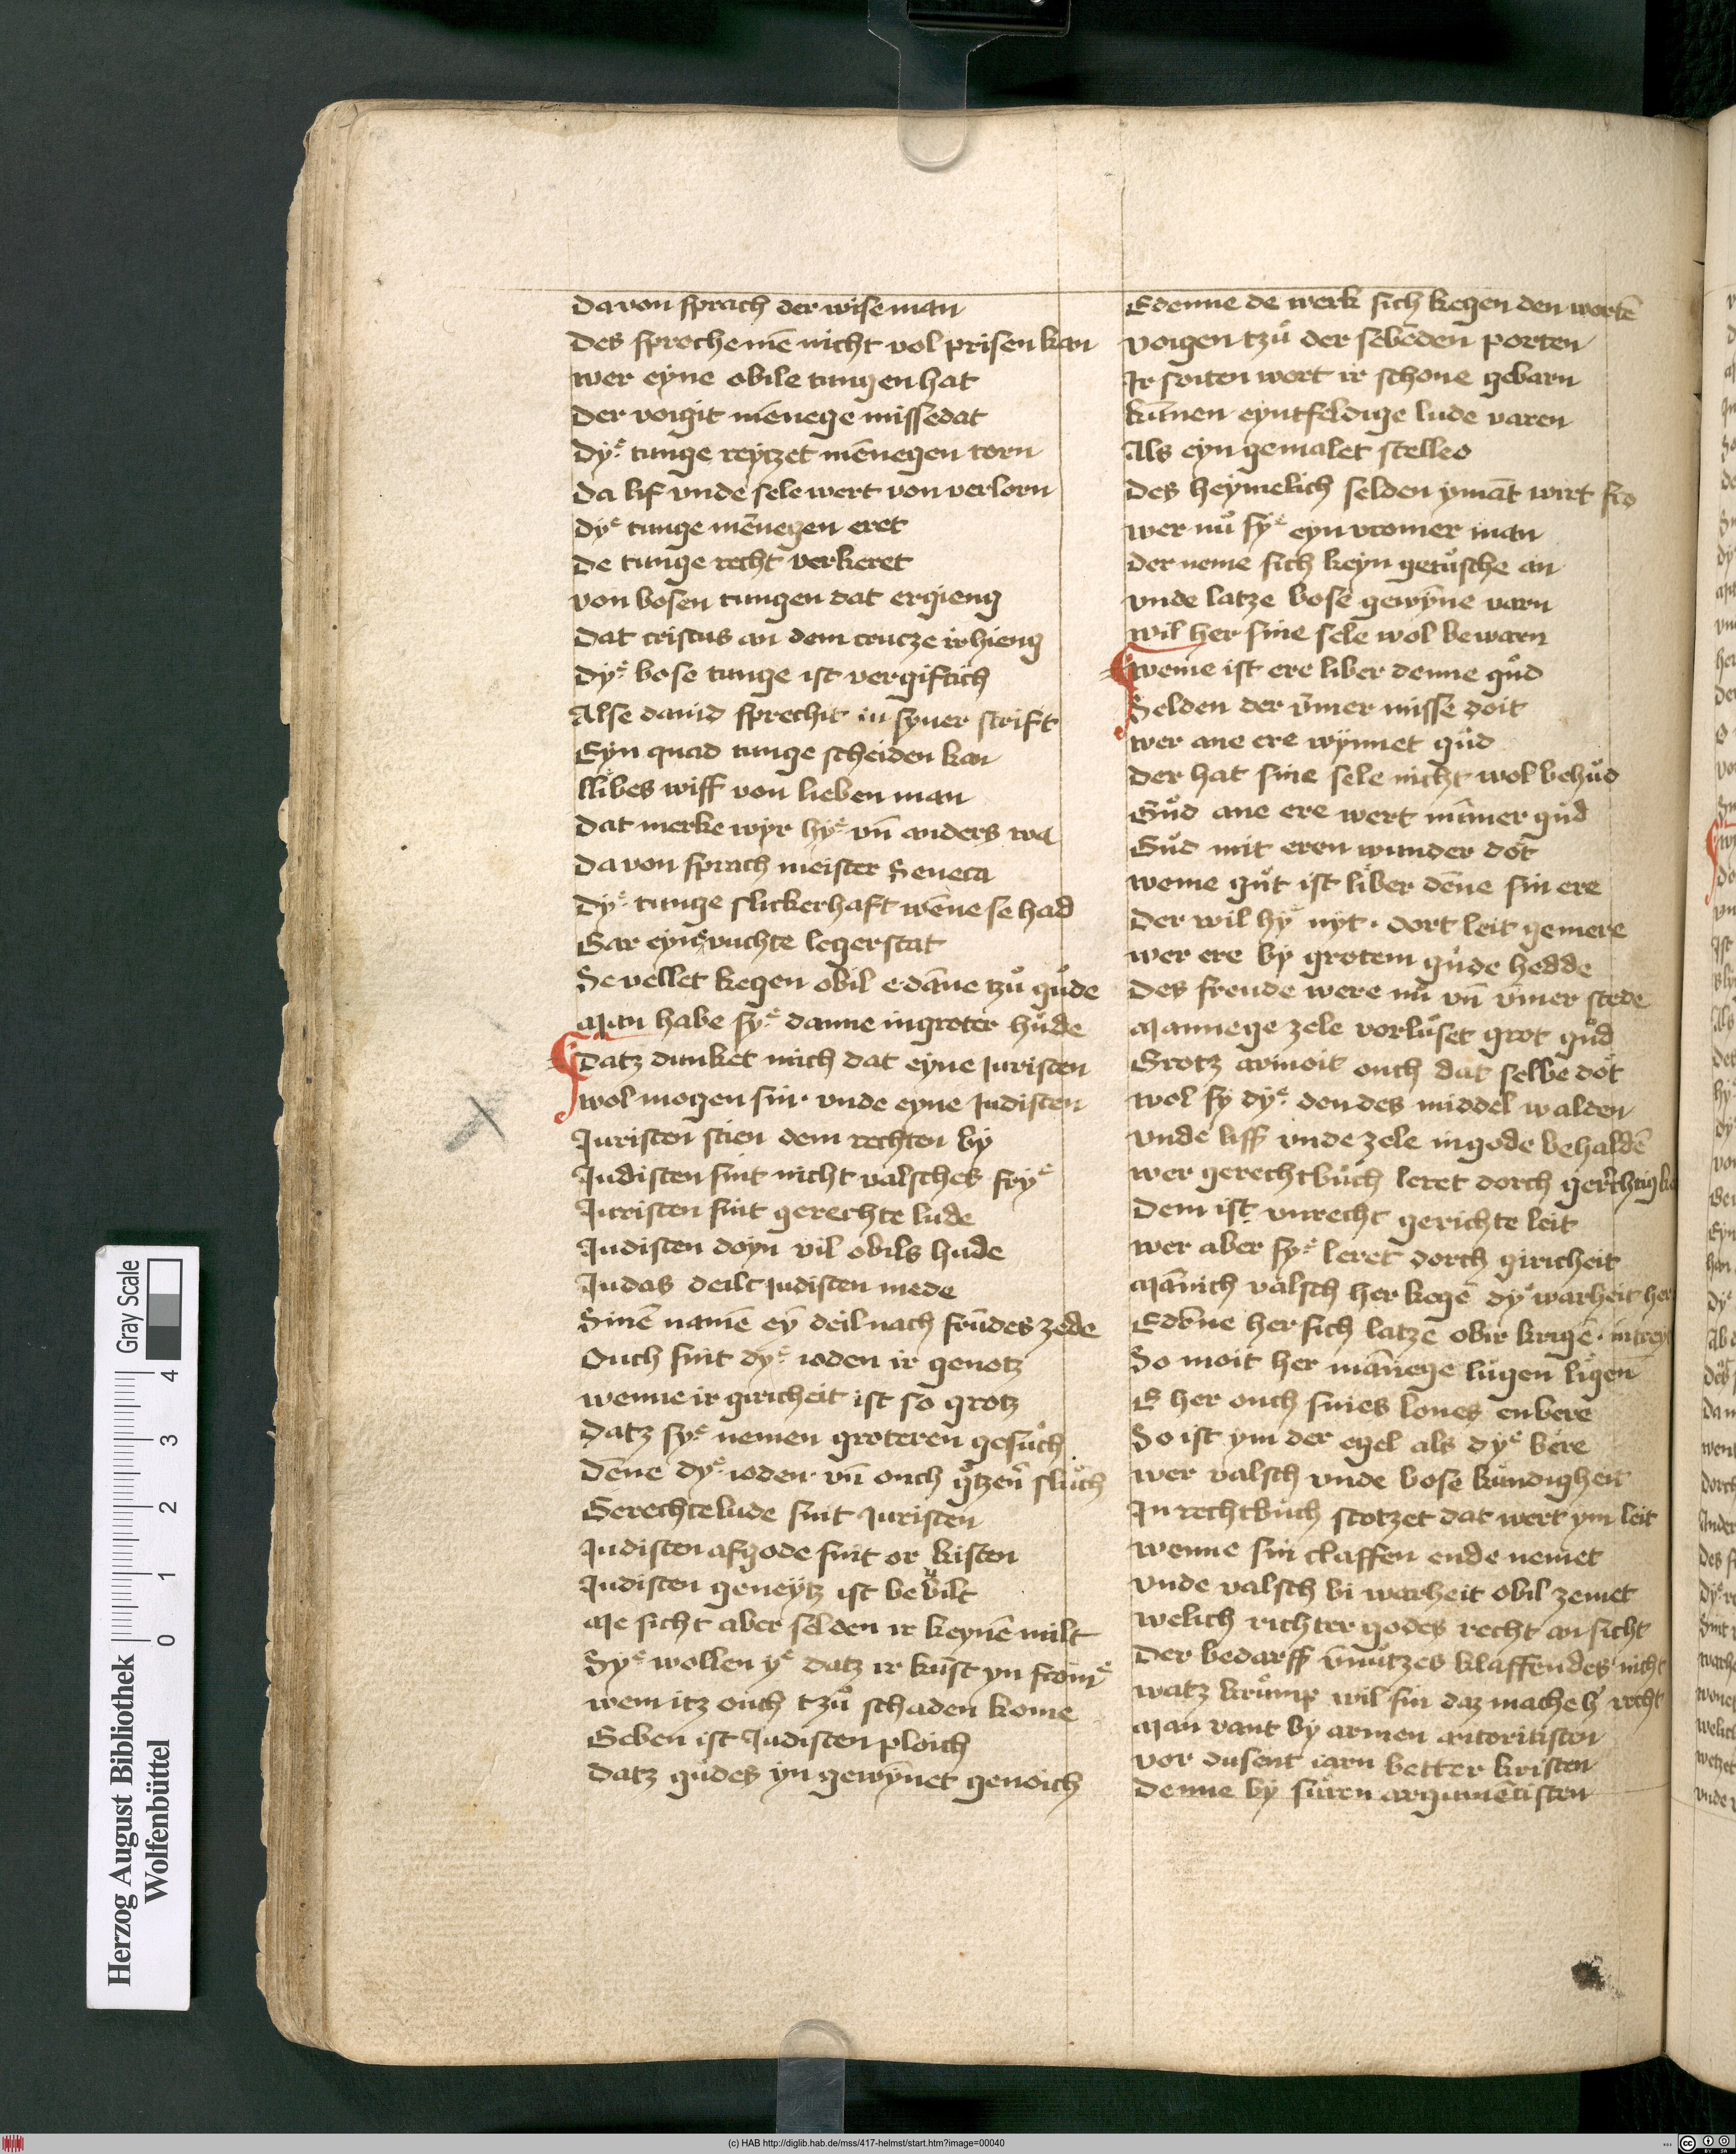 Da von sprach der wise man
Des sproche mē nicht vol prisen kan
wer eyne obile tungen hat
Der voigit mēnege missedat
Dyͤ tunge reytzet mēnegen torn
Da lif vnde sele wert von verlorn
dyͤ tunge mēnegen eret
De tunge recht verkeret
von bosen tungen dat ergieng
Dat cristus an dem crucze irhieng
Dyͤ bose tunge ist vergiftich
Alse dauid sprechit in syner scrift
Eyn quad tunge scheiden kan
llibes wiff von lieben man
Dat merke wyr hyͤ vn̄ anders wa
Da von sprach meister Seneca
Dyͤ tunge slickerhaft wēne se had
Gar eyne vuchte legerstat
Se vellet kegen obil e dāne tzuͦ guͦde
Man habe syͤ danne in groter huͦde
Datz dunket mich dat eyne Juristen
wol mogen sin vnde eyne Judisten
Juristen stien dem rechten by
Judisten sint nicht valsches fryͤ
Juristen sint gerechte lude
Judisten doyn vil obils hude
Judas deilt Judisten mede
Sinē namē eȳ deil nach frūdes zede
Ouch sint dyͤ ioden ir genotz
wenne ir giricheit ist so grotz
Datz syͤ nemen groteren gesuͦch
Dēne dyͤ ioden vn̄ ouch
Gerechte lude sint Juristen
Judisten afgode sint or kisten
Judisten geneytz ist be vilt
Me sicht aber selden ir keynē milt
Syͤ wollen yͤ datz ir kūst yn from
wem itz ouch tzuͦ schaden kome
Geben ist Judisten ploich
Datz guͦdes yn gewȳnet genoich
E denne de werk sich kegen den wortē
voigen tzuͦ der sebēden porten
Ir soiten wort ir schone gebarn
kūnen eyntfeldige lude varen
Als eyn gemalet stelleo
Des heymelich selden ymāt wirt fro
wer nuͦ syͤ eyn vromer man
Der neme sich keyn getuͦsche an
vnde latze bose gewȳne varn
wil her sine sele wol bewarn
weme ist ere liber denne guͦd
Selden der v̄mer misse doit
wer ane ere wȳnnet guͦd
Der hat sine sele nicht wol behuͦd
Guͦd ane ere wert nūmer guͦd
Guͦd mit eren wunder dot
weme guͦt ist liber dēne sin ere
Der wil hyͤ nyt dort leit gemere
wer ere by grotem guͦde hedde
Des freude were nuͦ vn̄ v̄mer stede
Mannege zele vorluͦset grot guͦd
Grotz armoit ouch dat selbe dot
wol sy dyͤ den des middel walden
vnde liff vnde zele in gode behaldē
wer gerecht buͦch leret dorch
Dem ist vnrecht gerichte leit
wer aber syͤ leret dorch giricheit
Mānich valsch her kegē dyͤ warheit
E dēne her sich latzē obir krigē
So moit her mānege lugen ligen
E her ouch sines lones enbere
So ist ym der egel als dyͤ bere
wer valsch vnde bose kuͦndigheit
In recht buͦch stotzet dat wert ym leit
wenne sin claffen ende nemet
vnde valsch bi warheit obil zemet
welich richter godes recht an sicht
Der bedarff v̄nuͦtzes klaffendes nicht
watz kruͦmp wil sin daz mache recht
Man vant by armen autoritisten
vor dusent iarn better kristen
Denne by suͦren argumētisten
Herzog August Bibliothek
Wolfenbüttel
Gray Scale
0 1 2 3 4
(c) HAB http://diglib.hab.de/mss/417-helmst/start.htm?image=00040